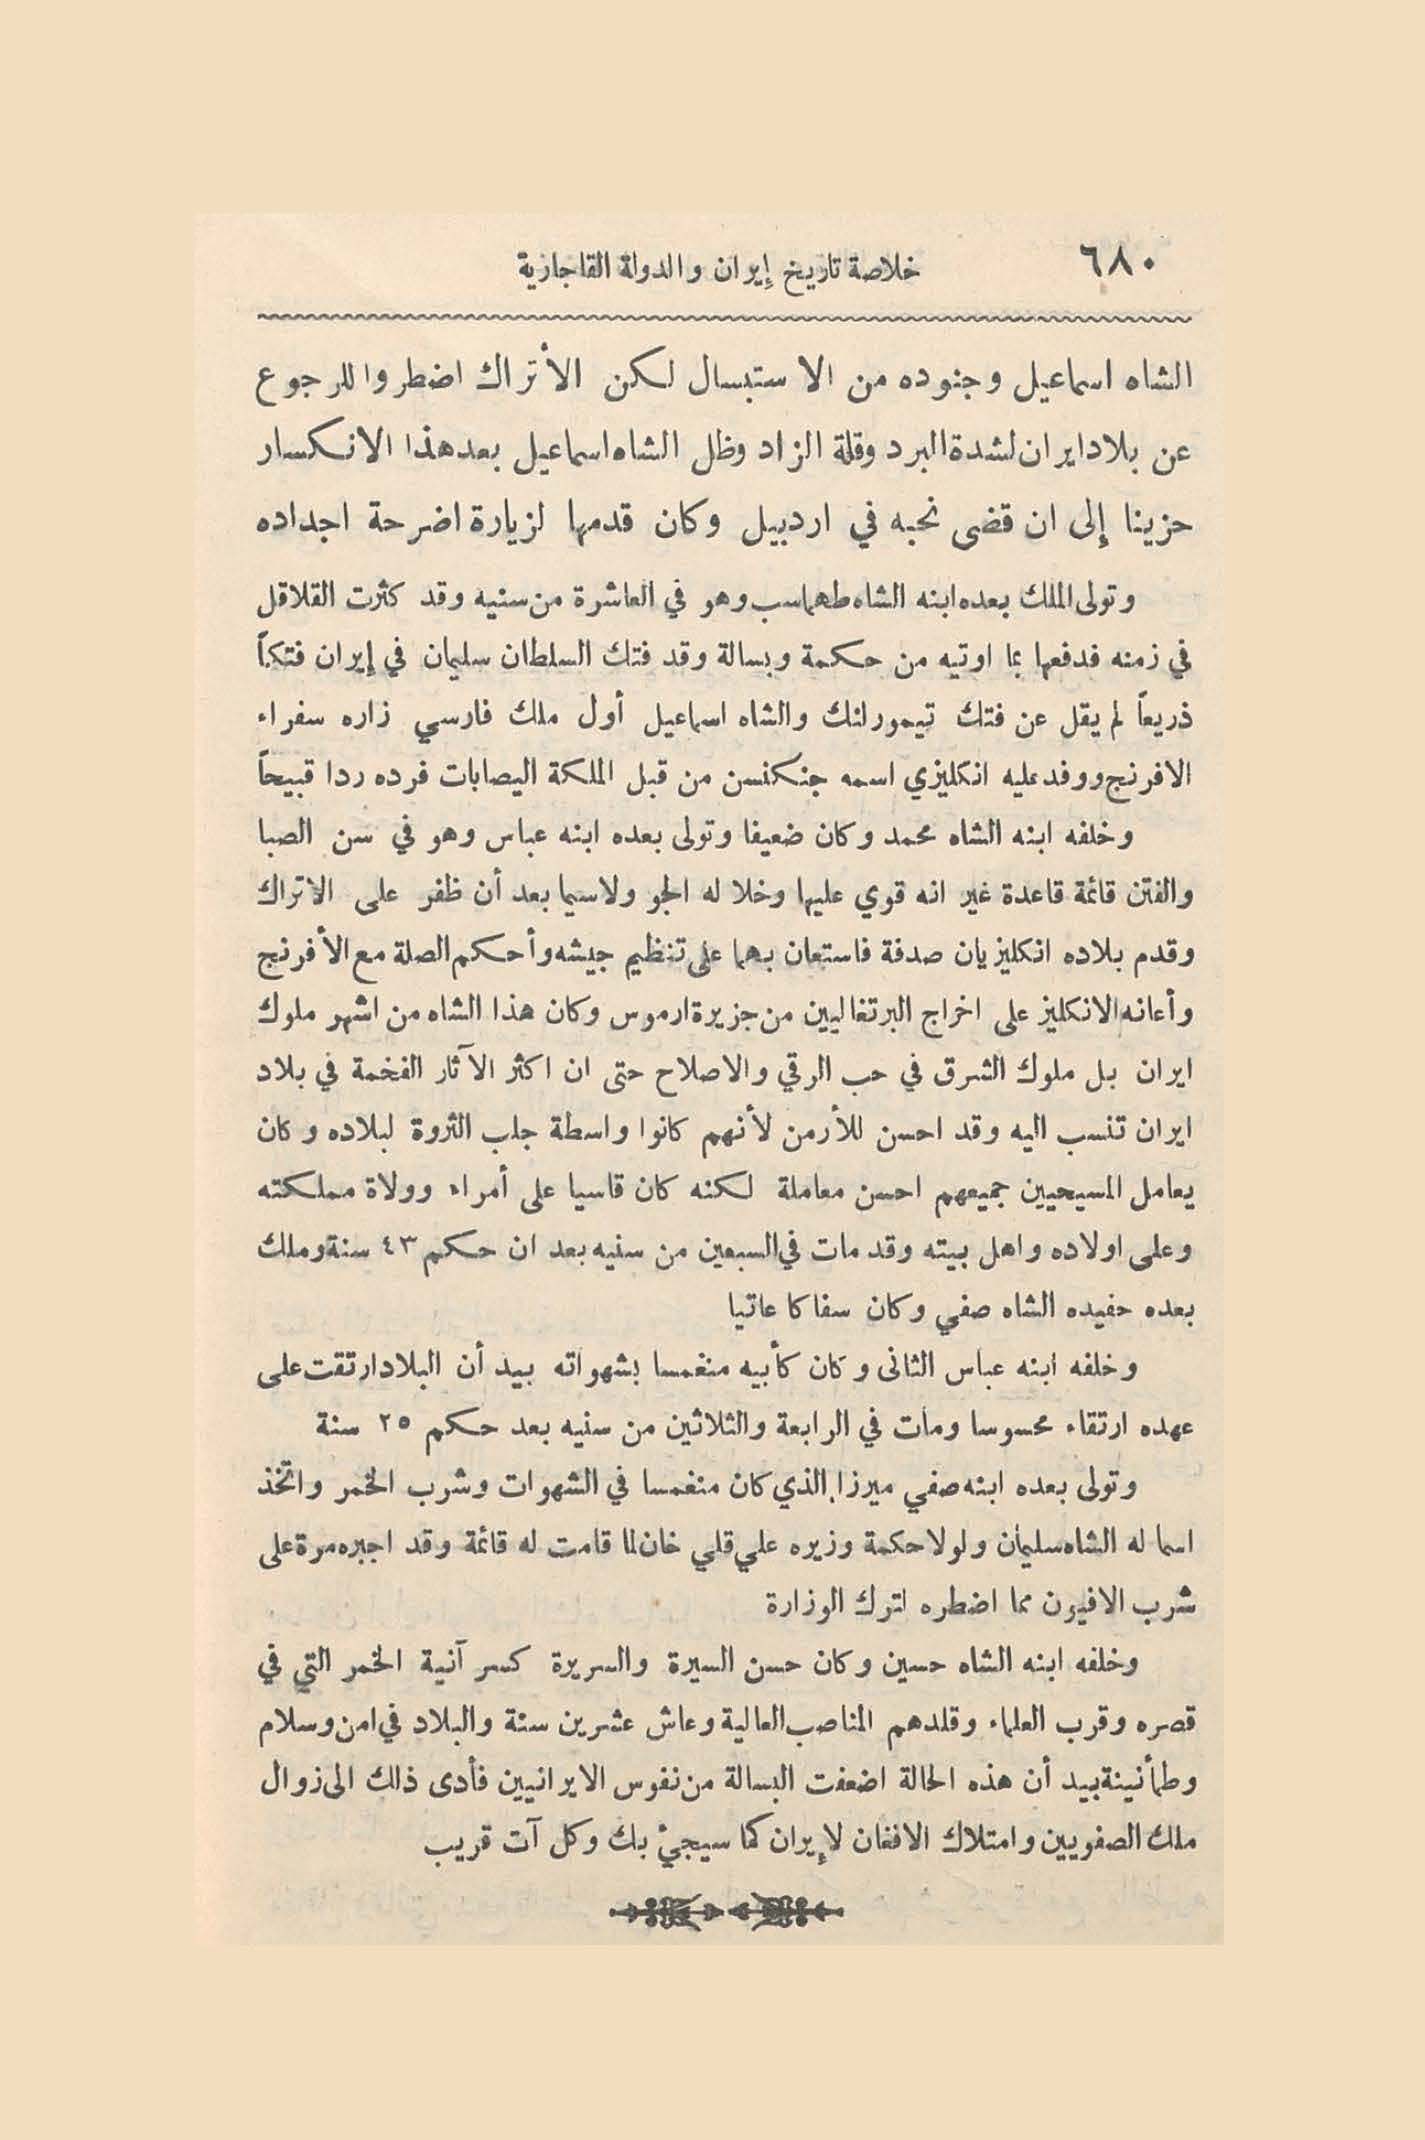 ٦٨٠
خلاصة تاريخ إيران والدولة القاجازية
الشاه اسماعيل وجنوده من الاستبسال لكن الأتراك اضطروا للرجوع
عن بلاد ايران لشدة البرد وقلة الزاد وظل الشاه اسماعيل بعد هذا الانكسار
حزينا إلى ان قضى نحبه في اردبيل وكان قدمها لزيارة اضرحة اجداده
وتولى الملك بعده ابنه الشاه طهماسب وهو في العاشرة من سنيه وقد كثرت القلاقل
في زمنه فدفعها بما اوتيه من حكمة وبسالة وقد فتك السلطان سليمان في إيران فتكاً
ذريعاً لم يقل عن فتك تيمورلنك والشاه اسماعيل أول ملك فارسي زاره سفراء
الافرنج ووفد عليه انكليزي اسمه جنكنسن من قبل الملكة اليصابات فرده ردا قبيحاً
وخلفه ابنه الشاه محمد وكان ضعيفا وتولى بعده ابنه عباس وهو في سن الصبا
والفتن قائمة قاعدة غير انه قوي عليها وخلا له الجو ولاسيما بعد أن ظفر على الاتراك
وقدم بلاده انكليزيان صدفة فاستعان بهما على تنظيم جيشه وأحكم الصلة مع الأفرنج
وأعانه الانكليز على اخراج البرتغاليين من جزيرة ارموس وكان هذا الشاه من اشهر ملوك
ايران بل ملوك الشرق في حب الرقي والاصلاح حتى ان اكثر الآثار الفخمة في بلاد
ايران تنسب اليه وقد احسن للأرمن لأنهم كانوا واسطة جلب الثروة لبلاده وكان
يعامل المسيحيين جميعهم احسن معاملة لكنه كان قاسيا على أمراء وولاة مملكته
وعلى اولاده واهل بيته وقد مات في السبعين من سنيه بعد ان حكم ٤٣ سنة وملك
بعده حفيده الشاه صفي وكان سفاكا عاتيا
وخلفه ابنه عباس الثانى وكان كأبيه منغمسا بشهواته بيد أن البلاد ارتقت على
عهده ارتقاء محسوسا ومات في الرابعة والثلاثين من سنيه بعد حكم ٢٥ سنة
وتولى بعده ابنه صفي ميرزا الذي كان منغمسا في الشهوات وشرب الخمر واتخذ
اسما له الشاه سليمان ولولا حكمة وزيره علي قلي خان لما قامت له قائمة وقد اجبره مرة على
شرب الافيون مما اضطره لترك الوزارة
وخلفه ابنه الشاه حسين وكان حسن السيرة والسريرة كسر آنية الخمر التي في
قصره وقرب العلماء وقلدهم المناصب العالية وعاش عشرين سنة والبلاد في امن وسلام
وطمأنينة بيد أن هذه الحالة اضعفت البسالة من نفوس الايرانيين فأدى ذلك الى زوال
ملك الصفويين وامتلاك الافغان لإيران كما سيجيء بك وكل آت قريب